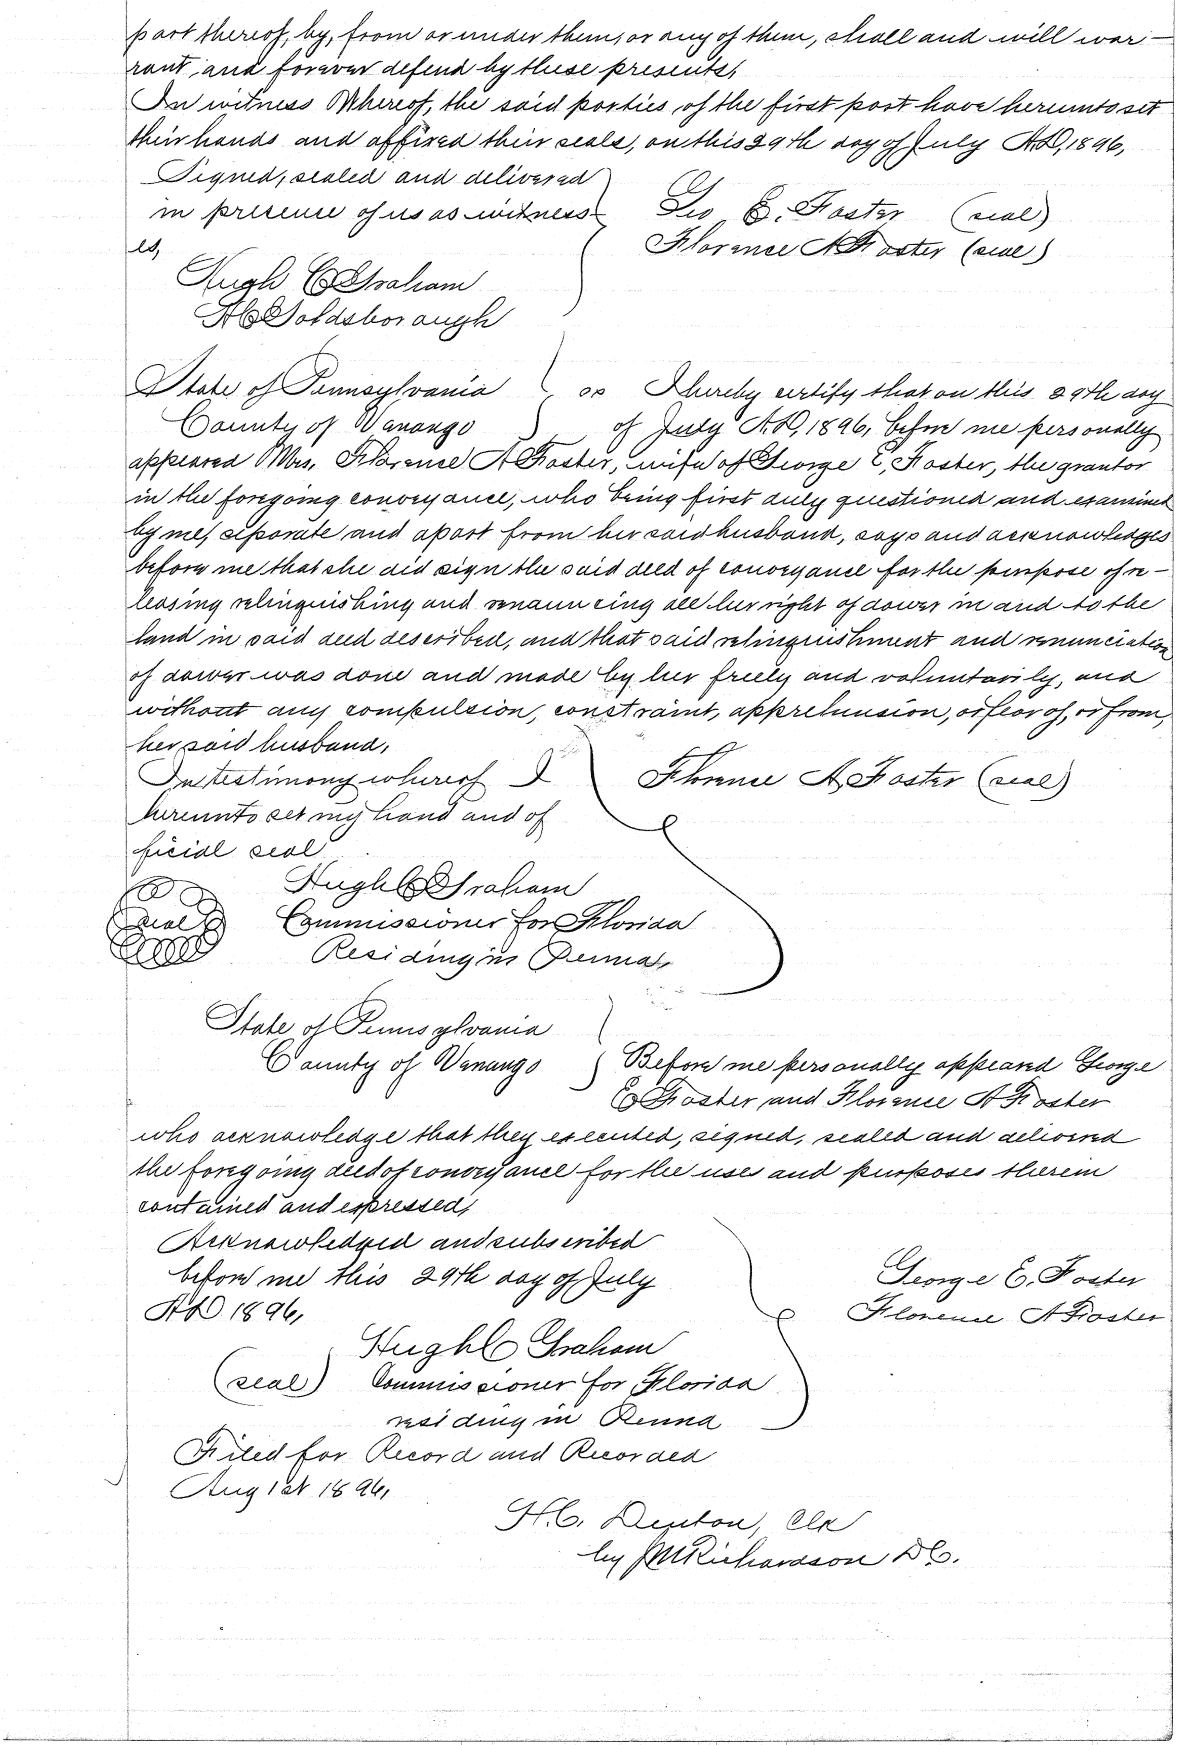 part thereof, by, from or under them, or any of them, shall and will war-
rant, and forever defend by these presents,
In witness Whereof, the said parties of the first part have hereunto set
their hands and affixed their seals, on this 29th day of July A.D, 1896,
Signed, sealed and delivered
in presence of us as witness-    Geo E. Foster (seal)
es,    Florence A Foster (seal)
Hugh C Graham
H C Goldsborough
State of Pennsylvania } ss I hereby certify that on this 29th day
County of Venango } of July A.D, 1896, before me personally
appeared Mrs, Florence A Foster, wife of George E, Foster, the grantor
in the foregoing conveyance, who being first duly questioned and examined
by me, separate and apart from her said husband, says and acknowledges
before me that she did sign the said deed of conveyance for the purpose of re-
leasing relinquishing and renouncing all her right of dower in and to the
land in said deed described, and that said relinquishment and renunciation
of dower was done and made by her freely and voluntarily, and
without any compulsion, constraint, apprehension, or fear of, or from,
her said husband,
In testimony whereof I    Florence A, Foster (seal)
hereunto set my hand and of
ficial seal
Hugh C Graham
seal Commissioner for Florida
Residing in Penna,
State of Pennsylvania
County of Venango } Before me personally appeared George
E Foster and Florence A Foster
who acknowledge that they executed, signed, sealed and delivered
the foregoing deed of conveyance for the uses and purposes therein
contained and expressed,
Acknowledged and subscribed
before me this 29th day of July    George E. Foster
A D 1896,    Florence A Foster
Hugh C Graham
(seal) Commissioner for Florida
residing in Penna
Filed for Record and Recorded
Aug 1st 1896,
H.C. Denton, Clk
by J M Richardson D C.